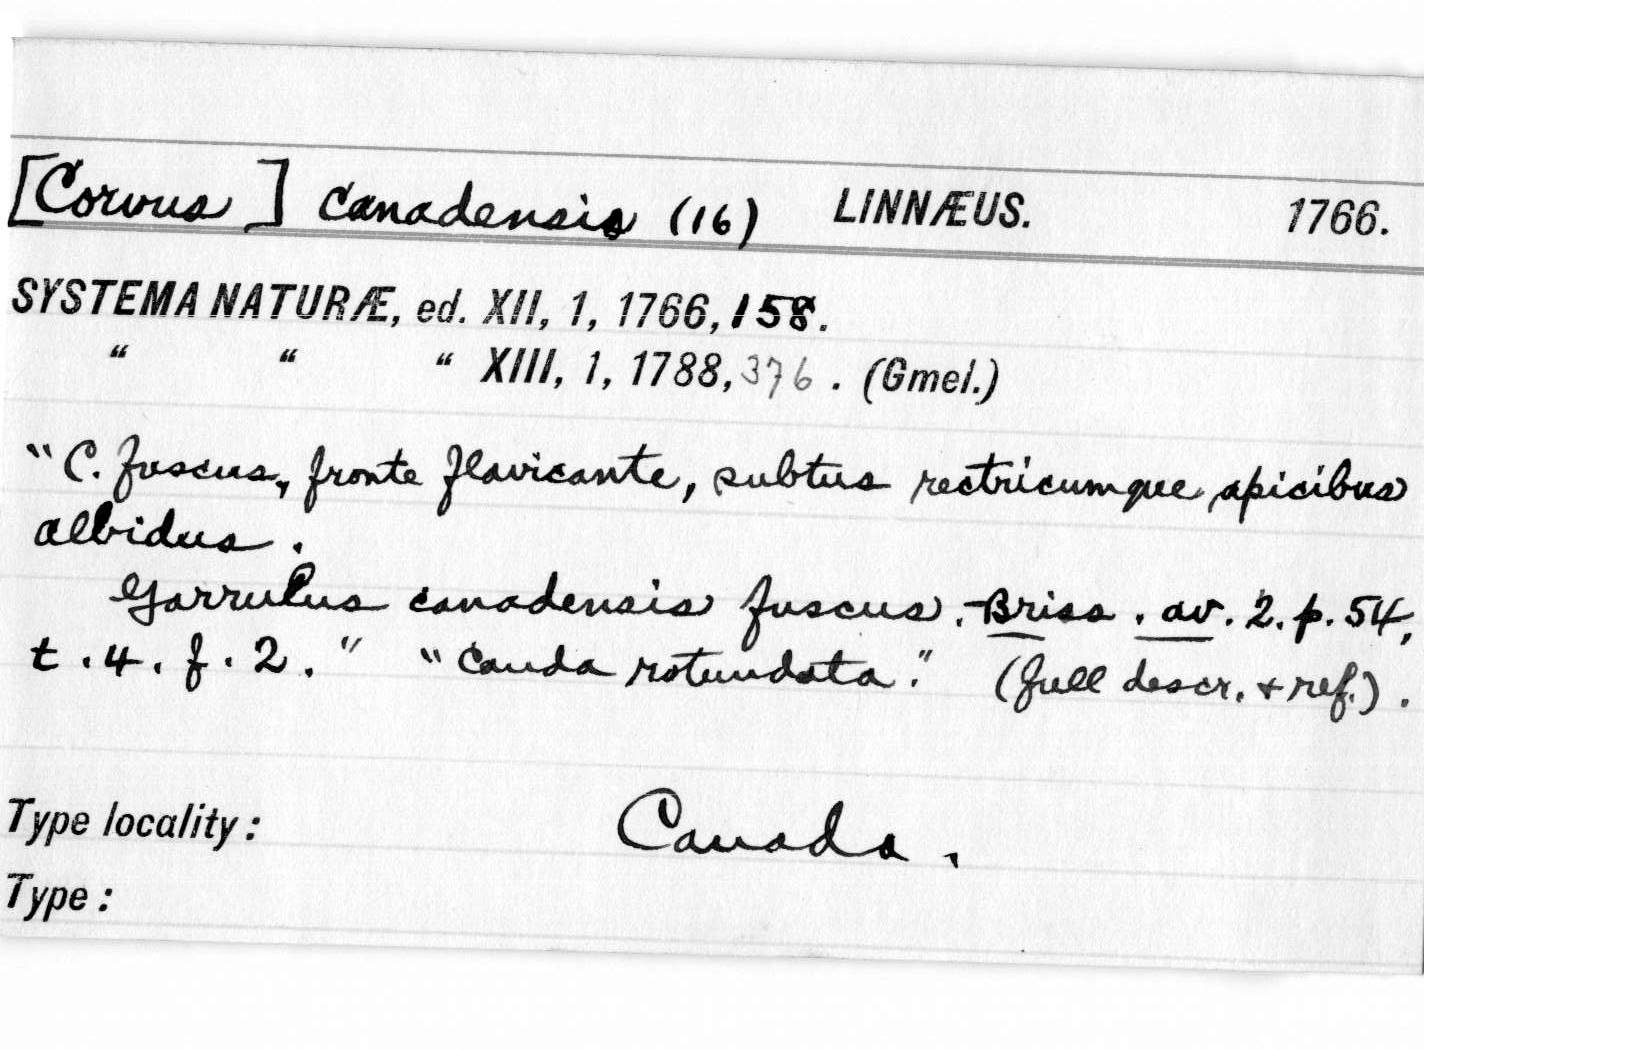 [Corvus] canadensis (16) LINNÆUS. 1766.
SYSTEMA NATURÆ, ed. XII, 1, 1766, 158.
“ “ “ XIII, 1, 1788, 376. (Gmel.)
“C. fuscus, fronte flavicante, subtus rectricumque apicibus
albidus.
Garrulus canadensis fuscus. Briss. av. 2. p. 54,
t. 4. f. 2.” “Cauda rotundata.” (full descr. + ref.).
Type locality: Canada.
Type: